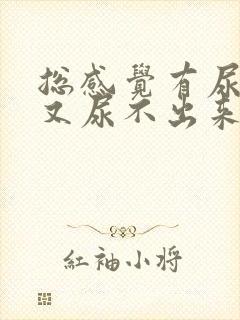 總感覺有尿
又尿不出來
紅袖小將